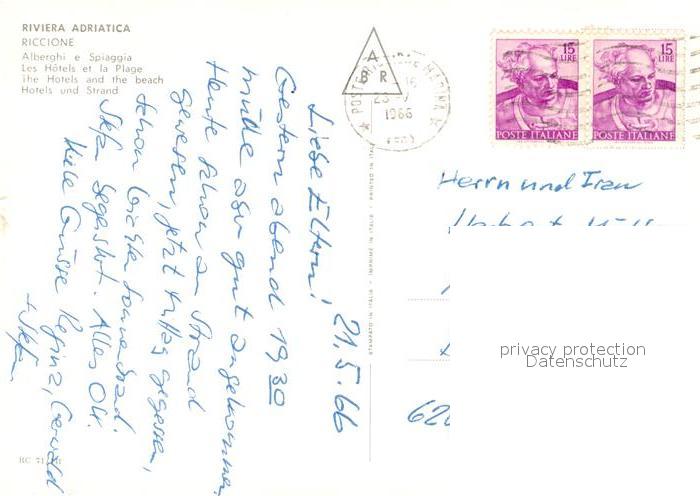 RIVIERA ADRIATICA
RICCIONE
Alberghi e Spiaggia
Les Hôtels et la Plage
The Hotels and the beach
Hotels und Strand
A
B R
POSTE
1966
15
LIRE
POSTE ITALIANE
15
LIRE
POSTE ITALIANE
21.5.66
Liebe Eltern!
Gestern abend 19 30
müde aber gut angekommen.
Heute schon am Strand
gewesen, jetzt Mittag gegessen,
schon leichter Sonnenbrand.
Alles OK.
Viele Grüsse Regina, Gerold
+ Stefan
STAMPATO IN ITALIA - IMPRIMÉ EN ITALIE - PRINTED IN ITALY
Herrn und Frau
62
privacy protection
Datenschutz